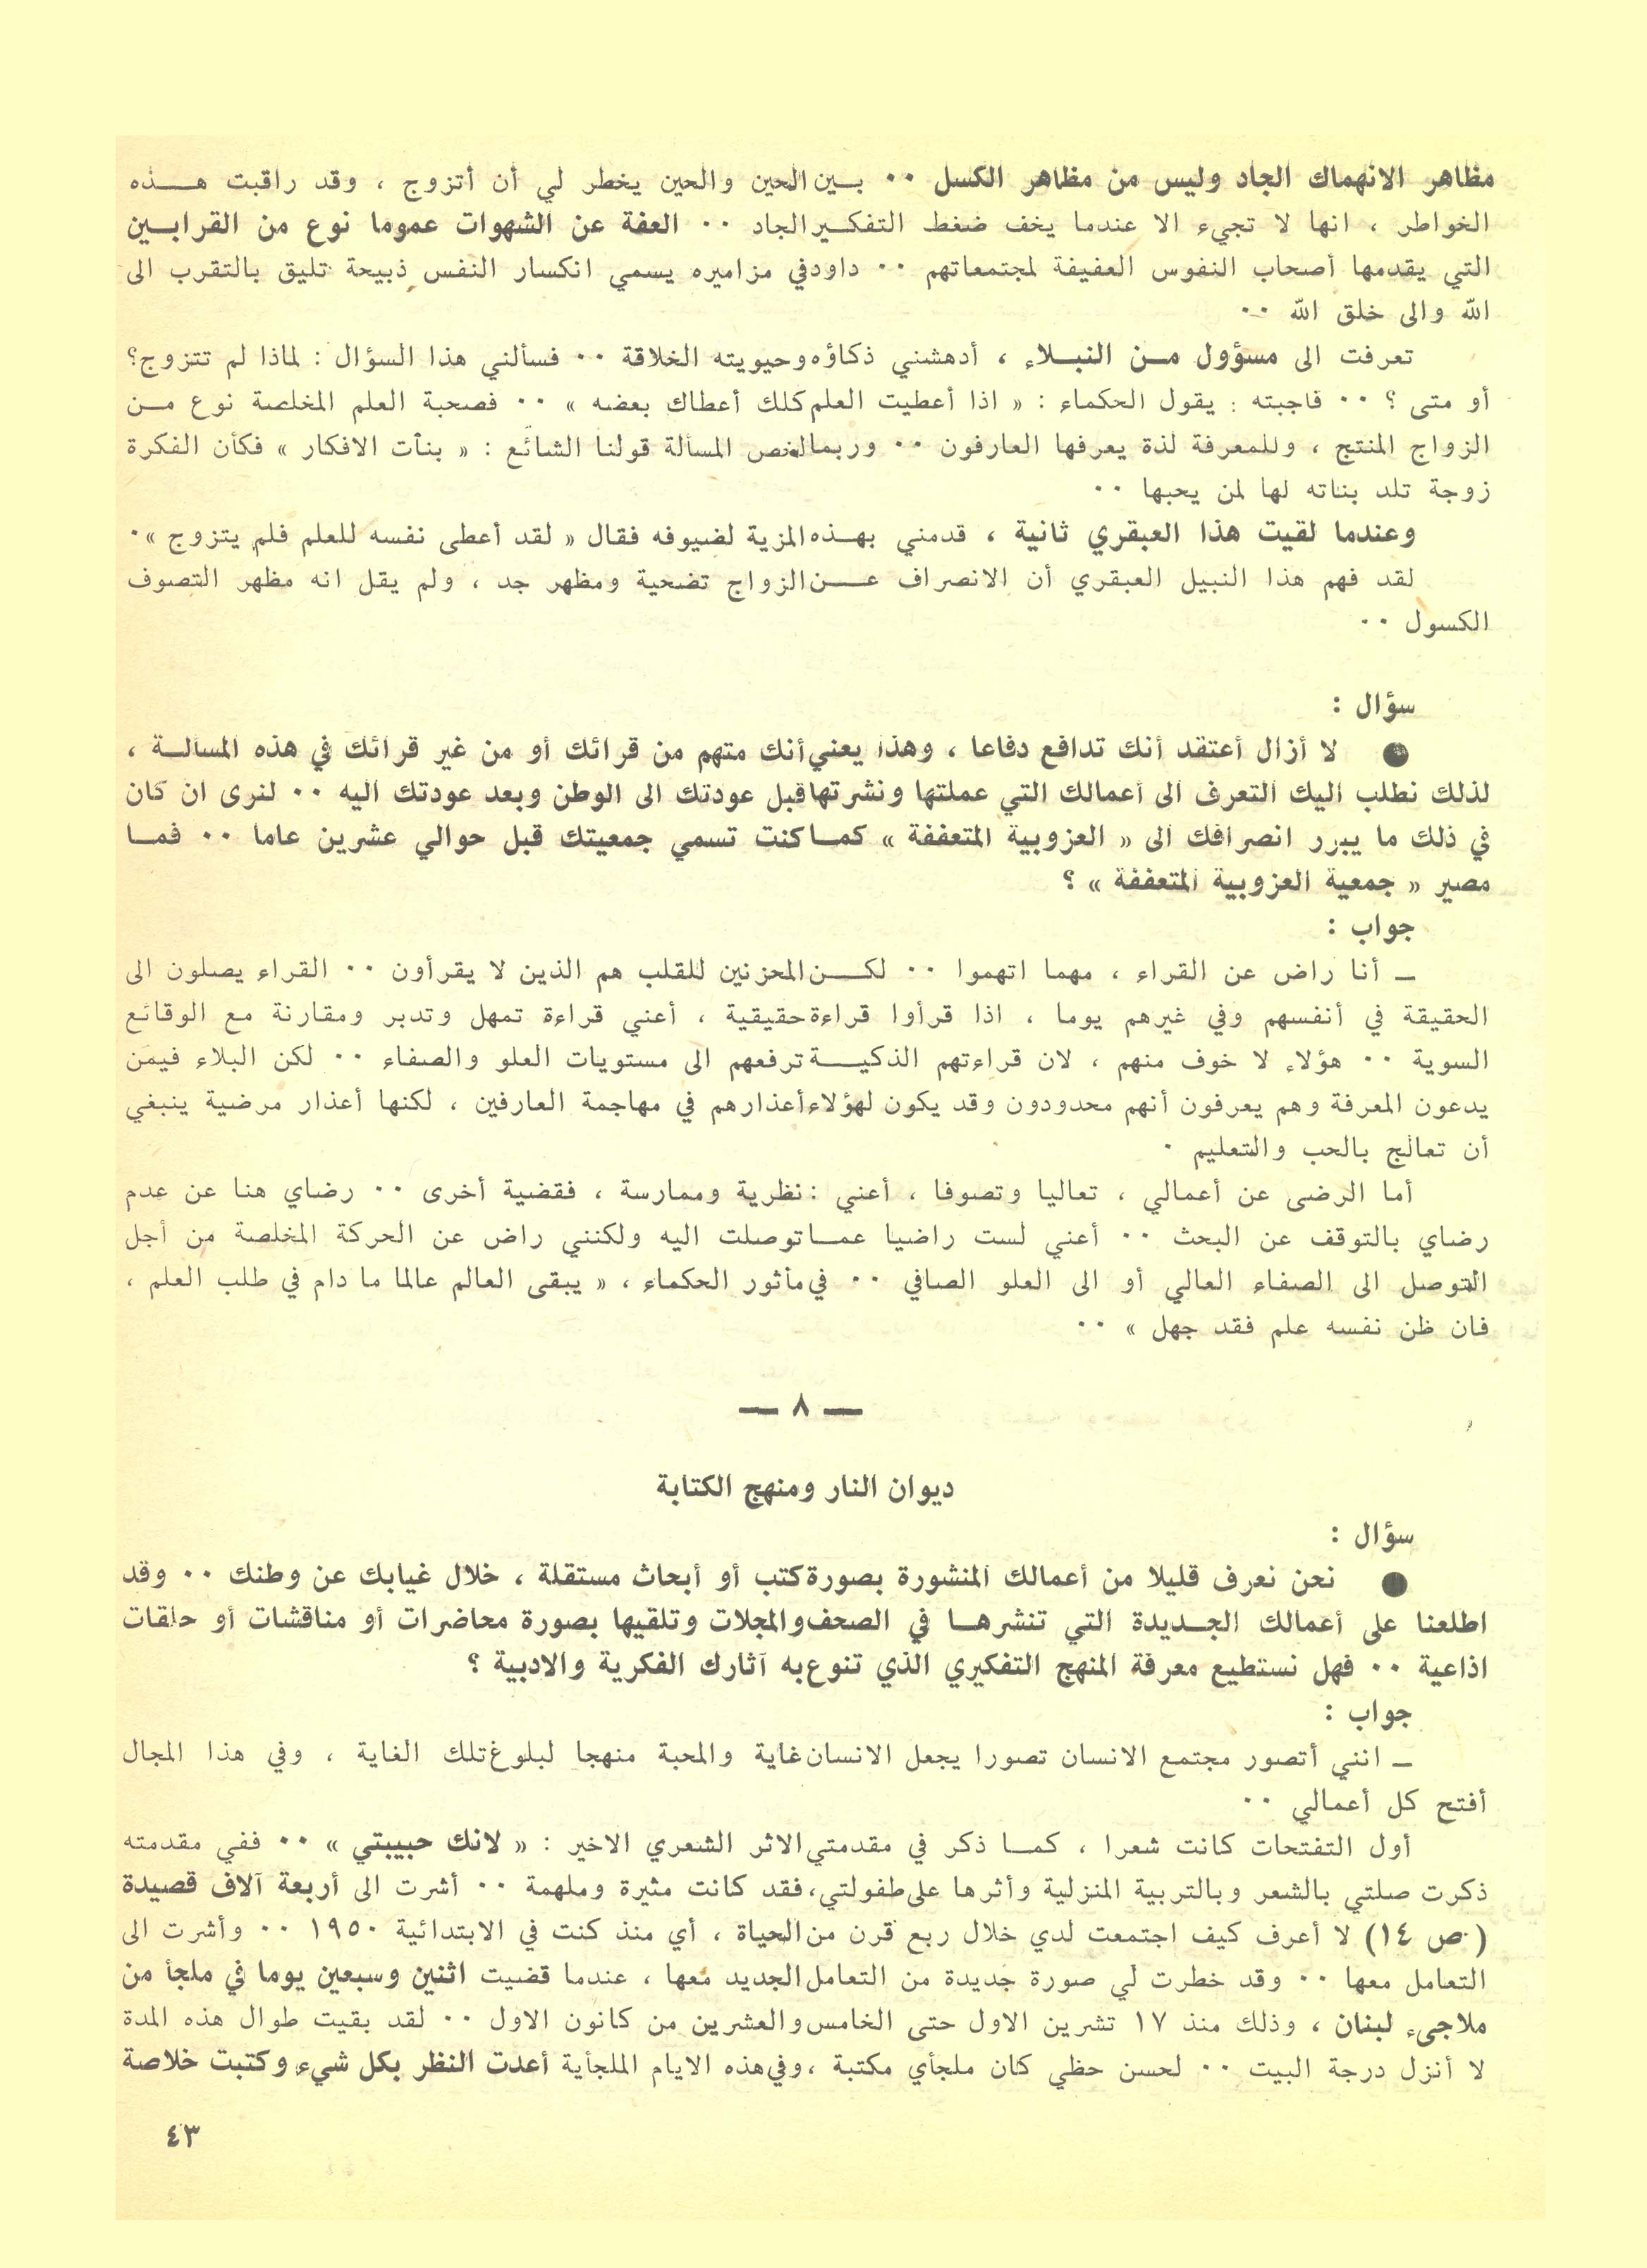 مظاهر الانهماك الجاد وليس من مظاهر الكسل ٠٠ بين الحين والحين يخطر لي أن أتزوج ، وقد راقبت هذه
الخواطر ، انها لا تجيء الا عندما يخف ضغط التفكير الجاد ٠٠ العفة عن الشهوات عموما نوع من القرابين
التي يقدمها أصحاب النفوس العفيفة لمجتمعاتهم ٠٠ داود في مزاميره يسمي انكسار النفس ذبيحة تليق بالتقرب الى
الله والى خلق الله ٠٠
تعرفت الى مسؤول من النبلاء ، أدهشني ذكاؤه وحيويته الخلاقة ٠٠ فسألني هذا السؤال : لماذا لم تتزوج؟
أو متى ؟ ٠٠ فاجبته : يقول الحكماء : « اذا أعطيت العلم كلك أعطاك بعضه » ٠٠ فصحبة العلم المخلصة نوع من
الزواج المنتج ، وللمعرفة لذة يعرفها العارفون ٠٠ وربما لخص المسألة قولنا الشائع : « بنات الافكار » فكأن الفكرة
زوجة تلد بناته لها لمن يحبها ٠٠
وعندما لقيت هذا العبقري ثانية ، قدمني بهذه المزية لضيوفه فقال « لقد أعطى نفسه للعلم فلم يتزوج »٠
لقد فهم هذا النبيل العبقري أن الانصراف عن الزواج تضحية ومظهر جد ، ولم يقل انه مظهر التصوف
الكسول ٠٠
سؤال :
● لا أزال أعتقد أنك تدافع دفاعا ، وهذا يعني أنك متهم من قرائك أو من غير قرائك في هذه المسالة ،
لذلك نطلب اليك التعرف الى أعمالك التي عملتها ونشرتها قبل عودتك الى الوطن وبعد عودتك اليه ٠٠ لنرى ان كان
في ذلك ما يبرر انصرافك الى « العزوبية المتعففة » كما كنت تسمي جمعيتك قبل حوالي عشرين عاما ٠٠ فما
مصير « جمعية العزوبية المتعففة » ؟
جواب :
ــ أنا راض عن القراء ، مهما اتهموا ٠٠ لكن المحزنين للقلب هم الذين لا يقرأون ٠٠ القراء يصلون الى
الحقيقة في أنفسهم وفي غيرهم يوما ، اذا قرأوا قراءة حقيقية ، أعني قراءة تمهل وتدبر ومقارنة مع الوقائع
السوية ٠٠ هؤلاء لا خوف منهم ، لان قراءتهم الذكية ترفعهم الى مستويات العلو والصفاء ٠٠ لكن البلاء فيمن
يدعون المعرفة وهم يعرفون أنهم محدودون وقد يكون لهؤلاء أعذارهم في مهاجمة العارفين ، لكنها أعذار مرضية ينبغي
أن تعالج بالحب والتعليم ٠
أما الرضى عن أعمالي ، تعاليا وتصوفا ، أعني : نظرية وممارسة ، فقضية أخرى ٠٠ رضاي هنا عن عدم
رضاي بالتوقف عن البحث ٠٠ أعني لست راضيا عما توصلت اليه ولكنني راض عن الحركة المخلصة من أجل
التوصل الى الصفاء العالي أو الى العلو الصافي ٠٠ في مأثور الحكماء ، « يبقى العالم عالما ما دام في طلب العلم ،
فان ظن نفسه علم فقد جهل » ٠٠
ــ ٨ ــ
ديوان النار ومنهج الكتابة
سؤال :
● نحن نعرف قليلا من أعمالك المنشورة بصورة كتب أو أبحاث مستقلة ، خلال غيابك عن وطنك ٠٠ وقد
اطلعنا على أعمالك الجديدة التي تنشرها في الصحف والمجلات وتلقيها بصورة محاضرات أو مناقشات أو حلقات
اذاعية ٠٠ فهل نستطيع معرفة المنهج التفكيري الذي تنوع به آثارك الفكرية والادبية ؟
جواب :
ــ انني أتصور مجتمع الانسان تصورا يجعل الانسان غاية والمحبة منهجا لبلوغ تلك الغاية ، وفي هذا المجال
أفتح كل أعمالي ٠٠
أول التفتحات كانت شعرا ، كما ذكر في مقدمتي الاثر الشعري الاخير : « لانك حبيبتي » ٠٠ ففي مقدمته
ذكرت صلتي بالشعر وبالتربية المنزلية وأثرها على طفولتي، فقد كانت مثيرة وملهمة ٠٠ أشرت الى أربعة آلاف قصيدة
(ص ١٤) لا أعرف كيف اجتمعت لدي خلال ربع قرن من الحياة ، أي منذ كنت في الابتدائية ١٩٥٠ ٠٠ وأشرت الى
التعامل معها ٠٠ وقد خطرت لي صورة جديدة من التعامل الجديد معها ، عندما قضيت اثنين وسبعين يوما في ملجأ من
ملاجيء لبنان ، وذلك منذ ١٧ تشرين الاول حتى الخامس والعشرين من كانون الاول ٠٠ لقد بقيت طوال هذه المدة
لا أنزل درجة البيت ٠٠ لحسن حظي كان ملجأي مكتبة ، وفي هذه الايام الملجأية أعدت النظر بكل شيء وكتبت خلاصة
٤٣